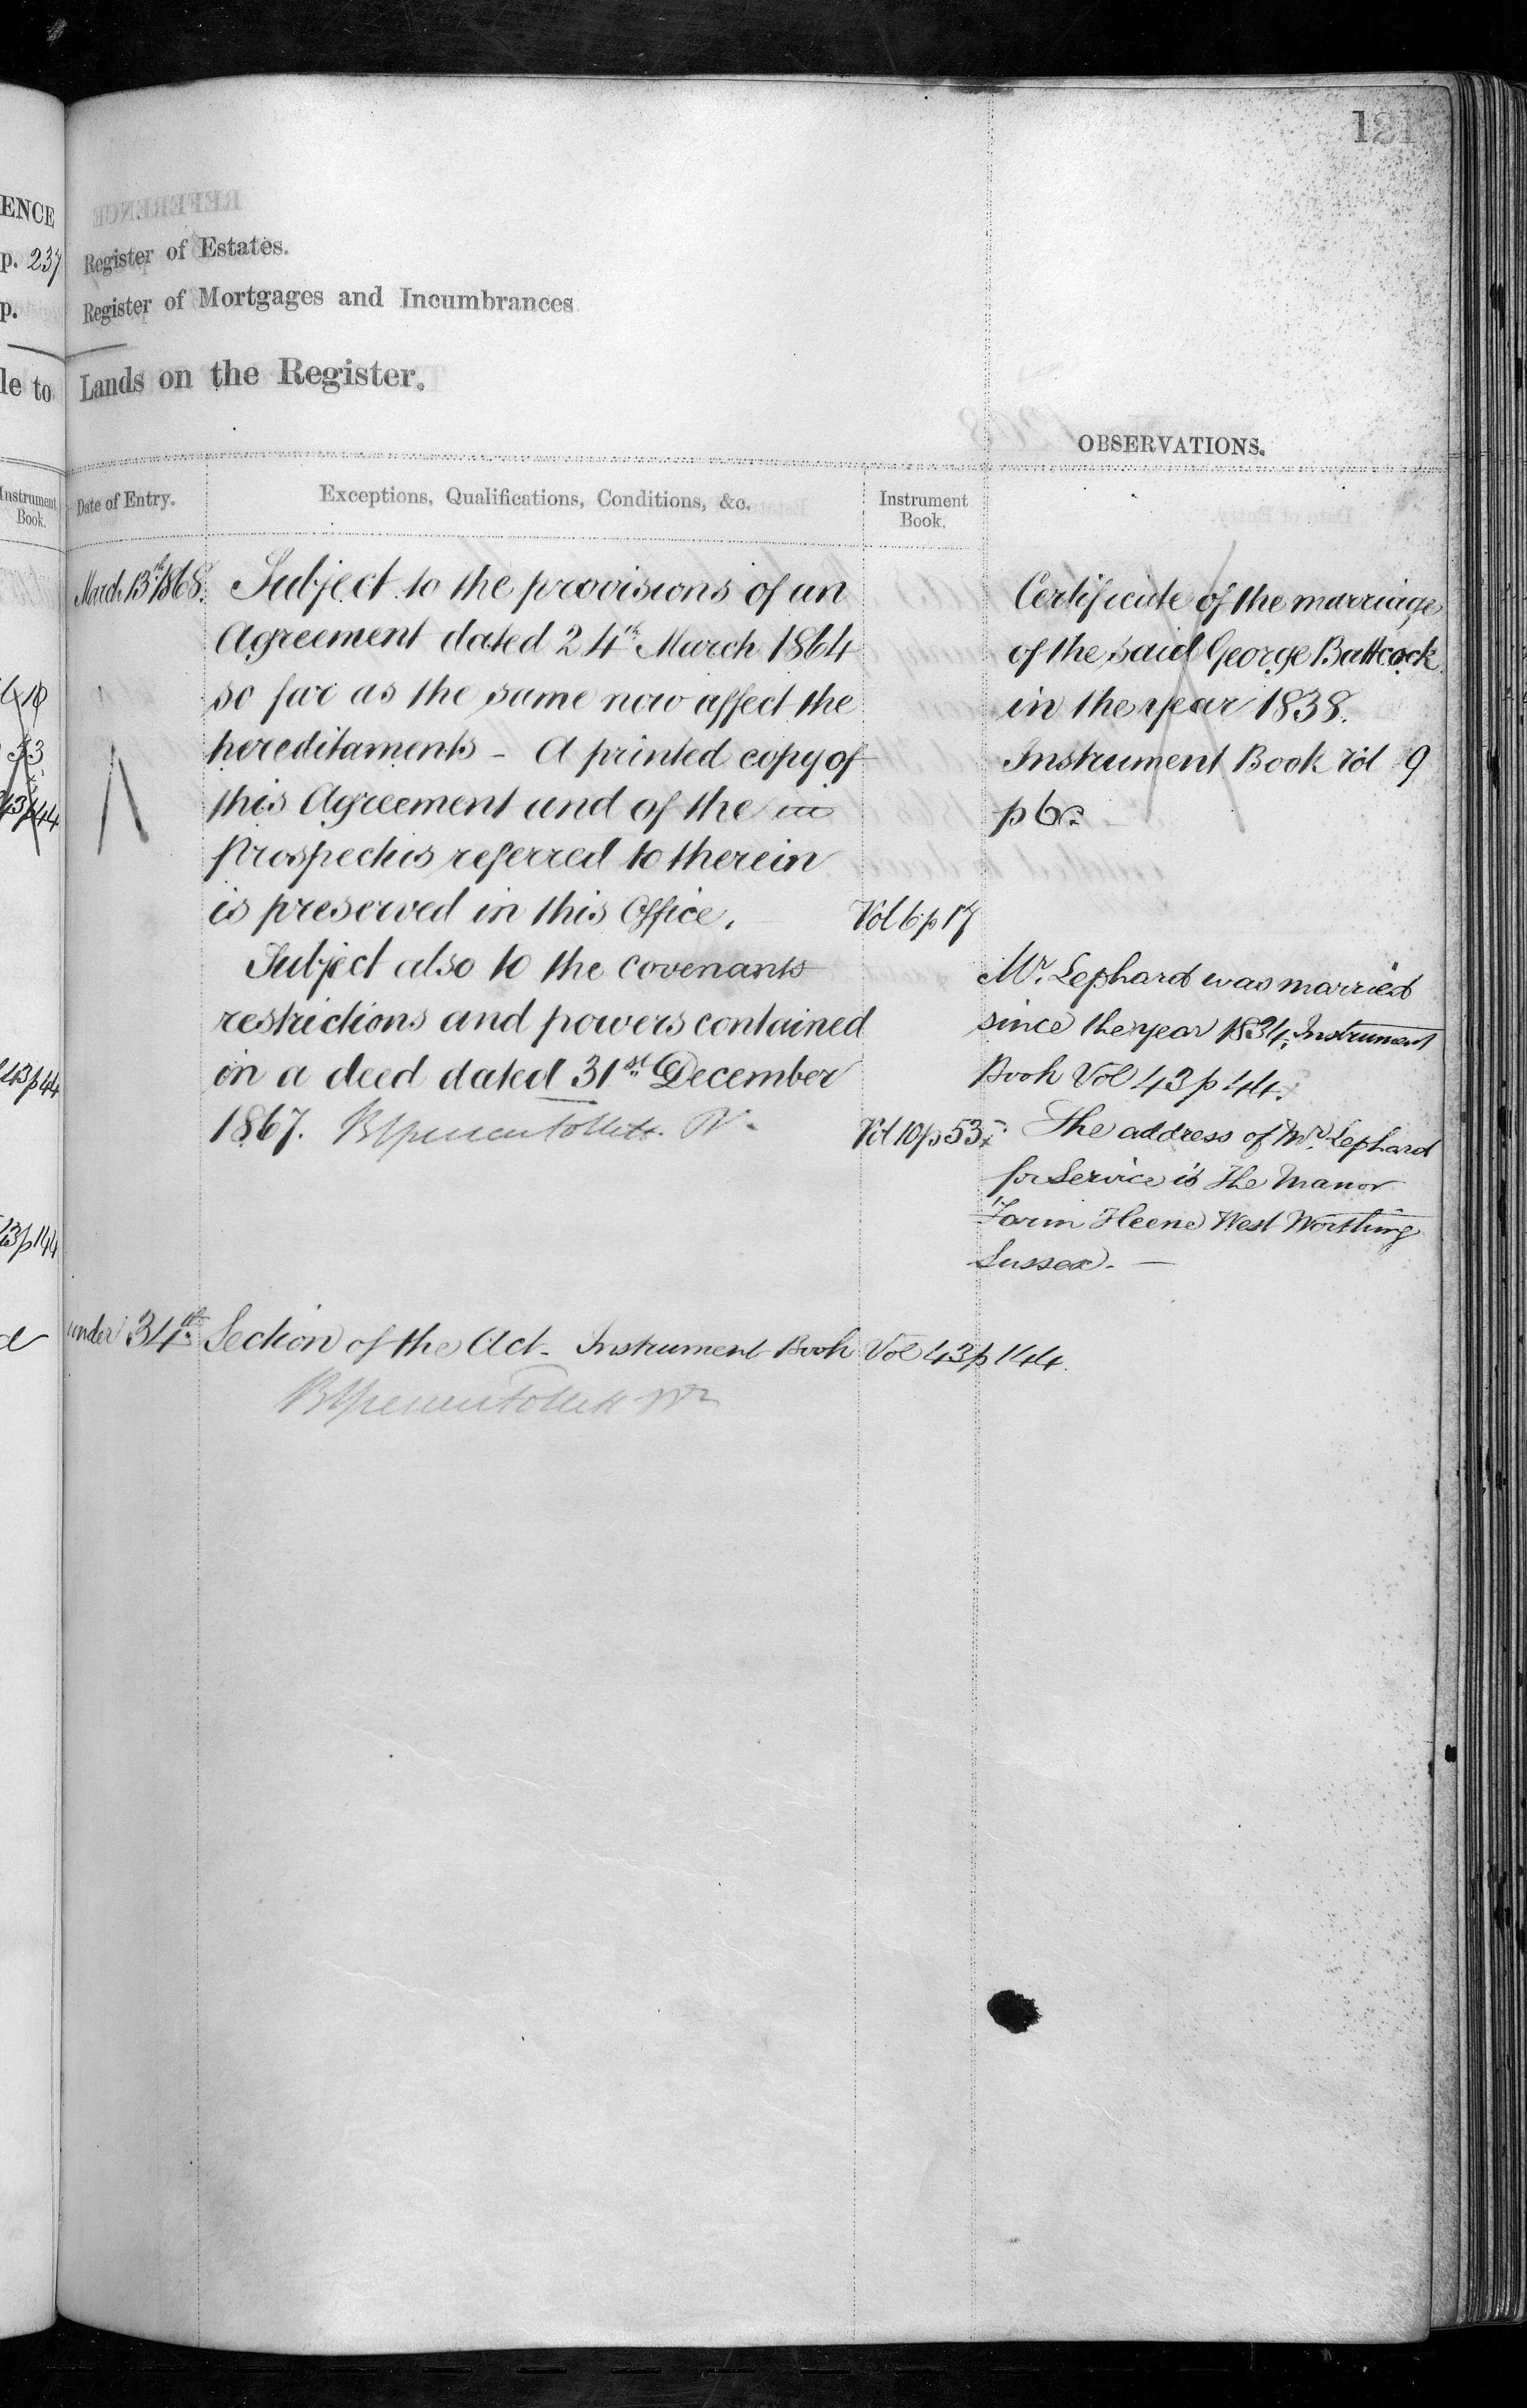 121
ENCE
p. 237
p.
le to
Instrument
Book.
43p44
43p144
Register of Estates.
Register of Mortgages and Incumbrances
Lands on the Register.
OBSERVATIONS.
Date of Entry.
Exceptions, Qualifications, Conditions, &c.
Instrument
Book.
March 13th 1868.
Subject to the provisions of an
Agreement dated 24th March 1864
so far as the same now affect the
hereditaments - A printed copy of
this Agreement and of the
Prospectus referred to therein
is preserved in this Office. Vol 6 p 17
Subject also to the covenants
restrictions and powers contained
in a deed dated 31st December
1867. Vol 10 p 53
Certificate of the marriage
of the said George Battcock
in the year 1838.
Instrument Book Vol 9
p 6
Mr. Lephard was married
since the year 1834. Instrument
Book Vol 43 p 44.
The address of Mr. Lephard
for Service is The Manor
Farm Heene West Worthing
Sussex. —
under 34th Section of the Act - Instrument Book Vol 43 p 144.